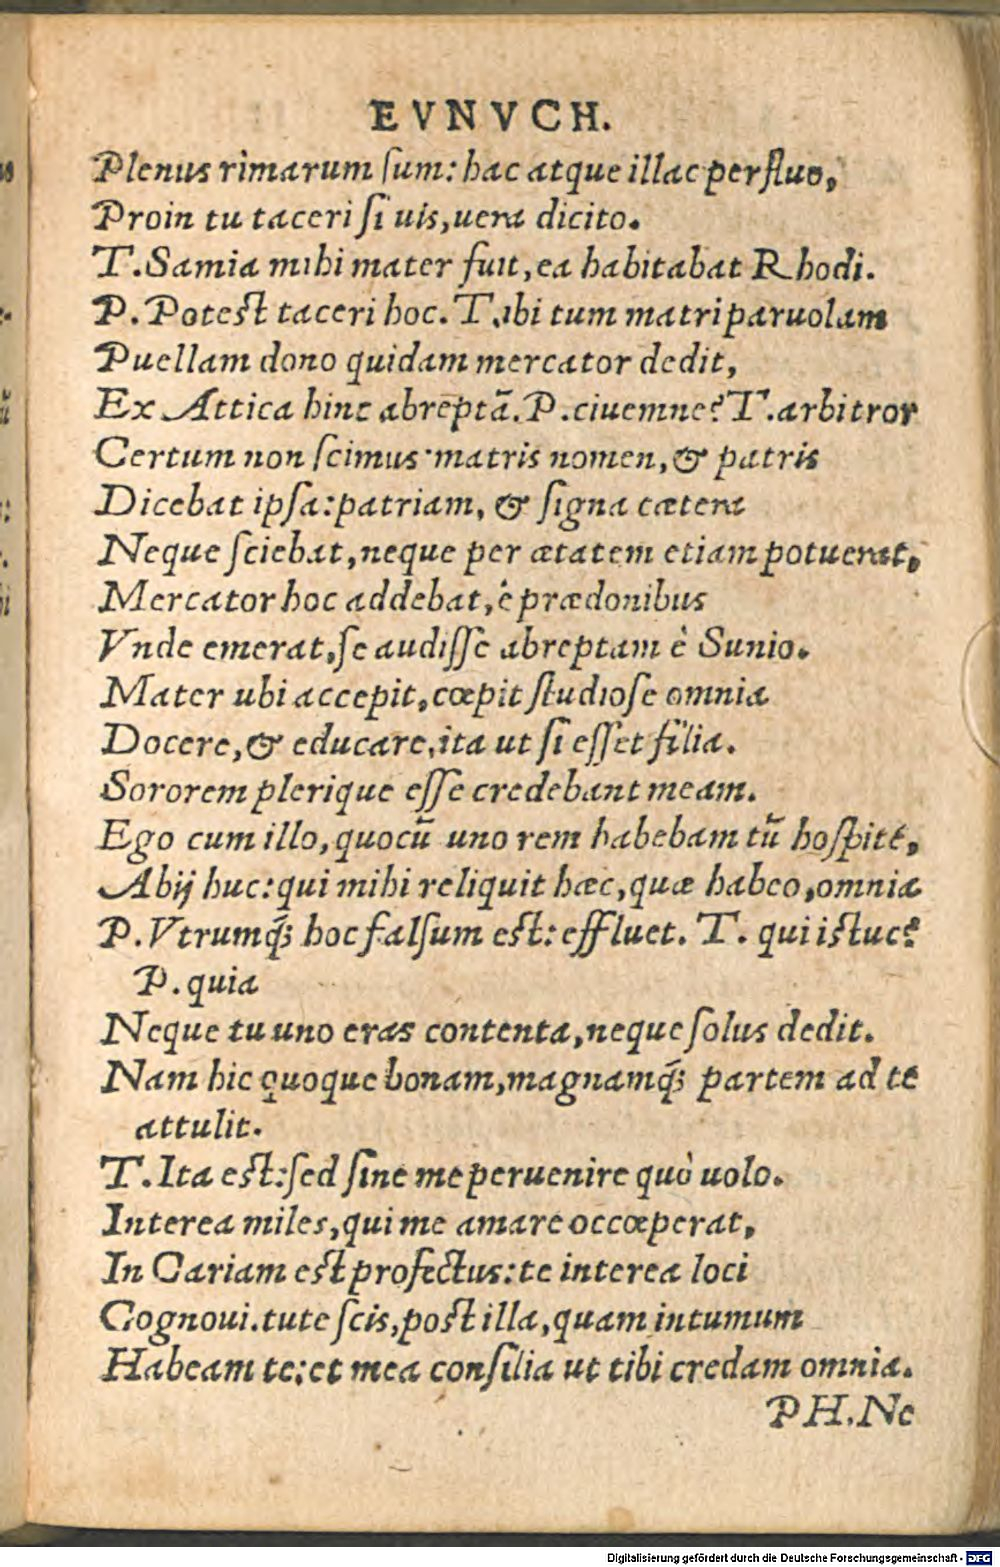 EVNVCH.
Plenus rimarum sum: hac atque illac perfluo,
Proin tu taceri si uis, uera dicito.
T. Samia mihi mater fuit, ea habitabat Rhodi.
P. Potest taceri hoc. T. ibi tum matri paruolam
Puellam dono quidam mercator dedit,
Ex Attica hinc abreptā. P. ciuemne? T. arbitror
Certum non scimus· matris nomen, & patris
Dicebat ipsa: patriam, & signa cætera
Neque sciebat, neque per ætatem etiam potuerat,
Mercator hoc addebat, è prædonibus
Vnde emerat, se audisse abreptam è Sunio.
Mater ubi accepit, cœpit studiose omnia
Docere, & educare, ita ut si esset filia.
Sororem plerique esse credebant meam.
Ego cum illo, quocū uno rem habebam tū hospite,
Abij huc: qui mihi reliquit hæc, quæ habeo, omnia
P. Vtrumq́; hoc falsum est: effluet. T. qui istuc?
P. quia
Neque tu uno eras contenta, neque solus dedit.
Nam hic quoque bonam, magnamq́; partem ad te
attulit.
T. Ita est: sed sine me peruenire quò uolo.
Interea miles, qui me amare occœperat,
In Cariam est profectus: te interea loci
Cognoui. tute scis, post illa, quam intumum
Habeam te: et mea consilia ut tibi credam omnia.
PH. Ne
Digitalisierung gefördert durch die Deutsche Forschungsgemeinschaft - DFG